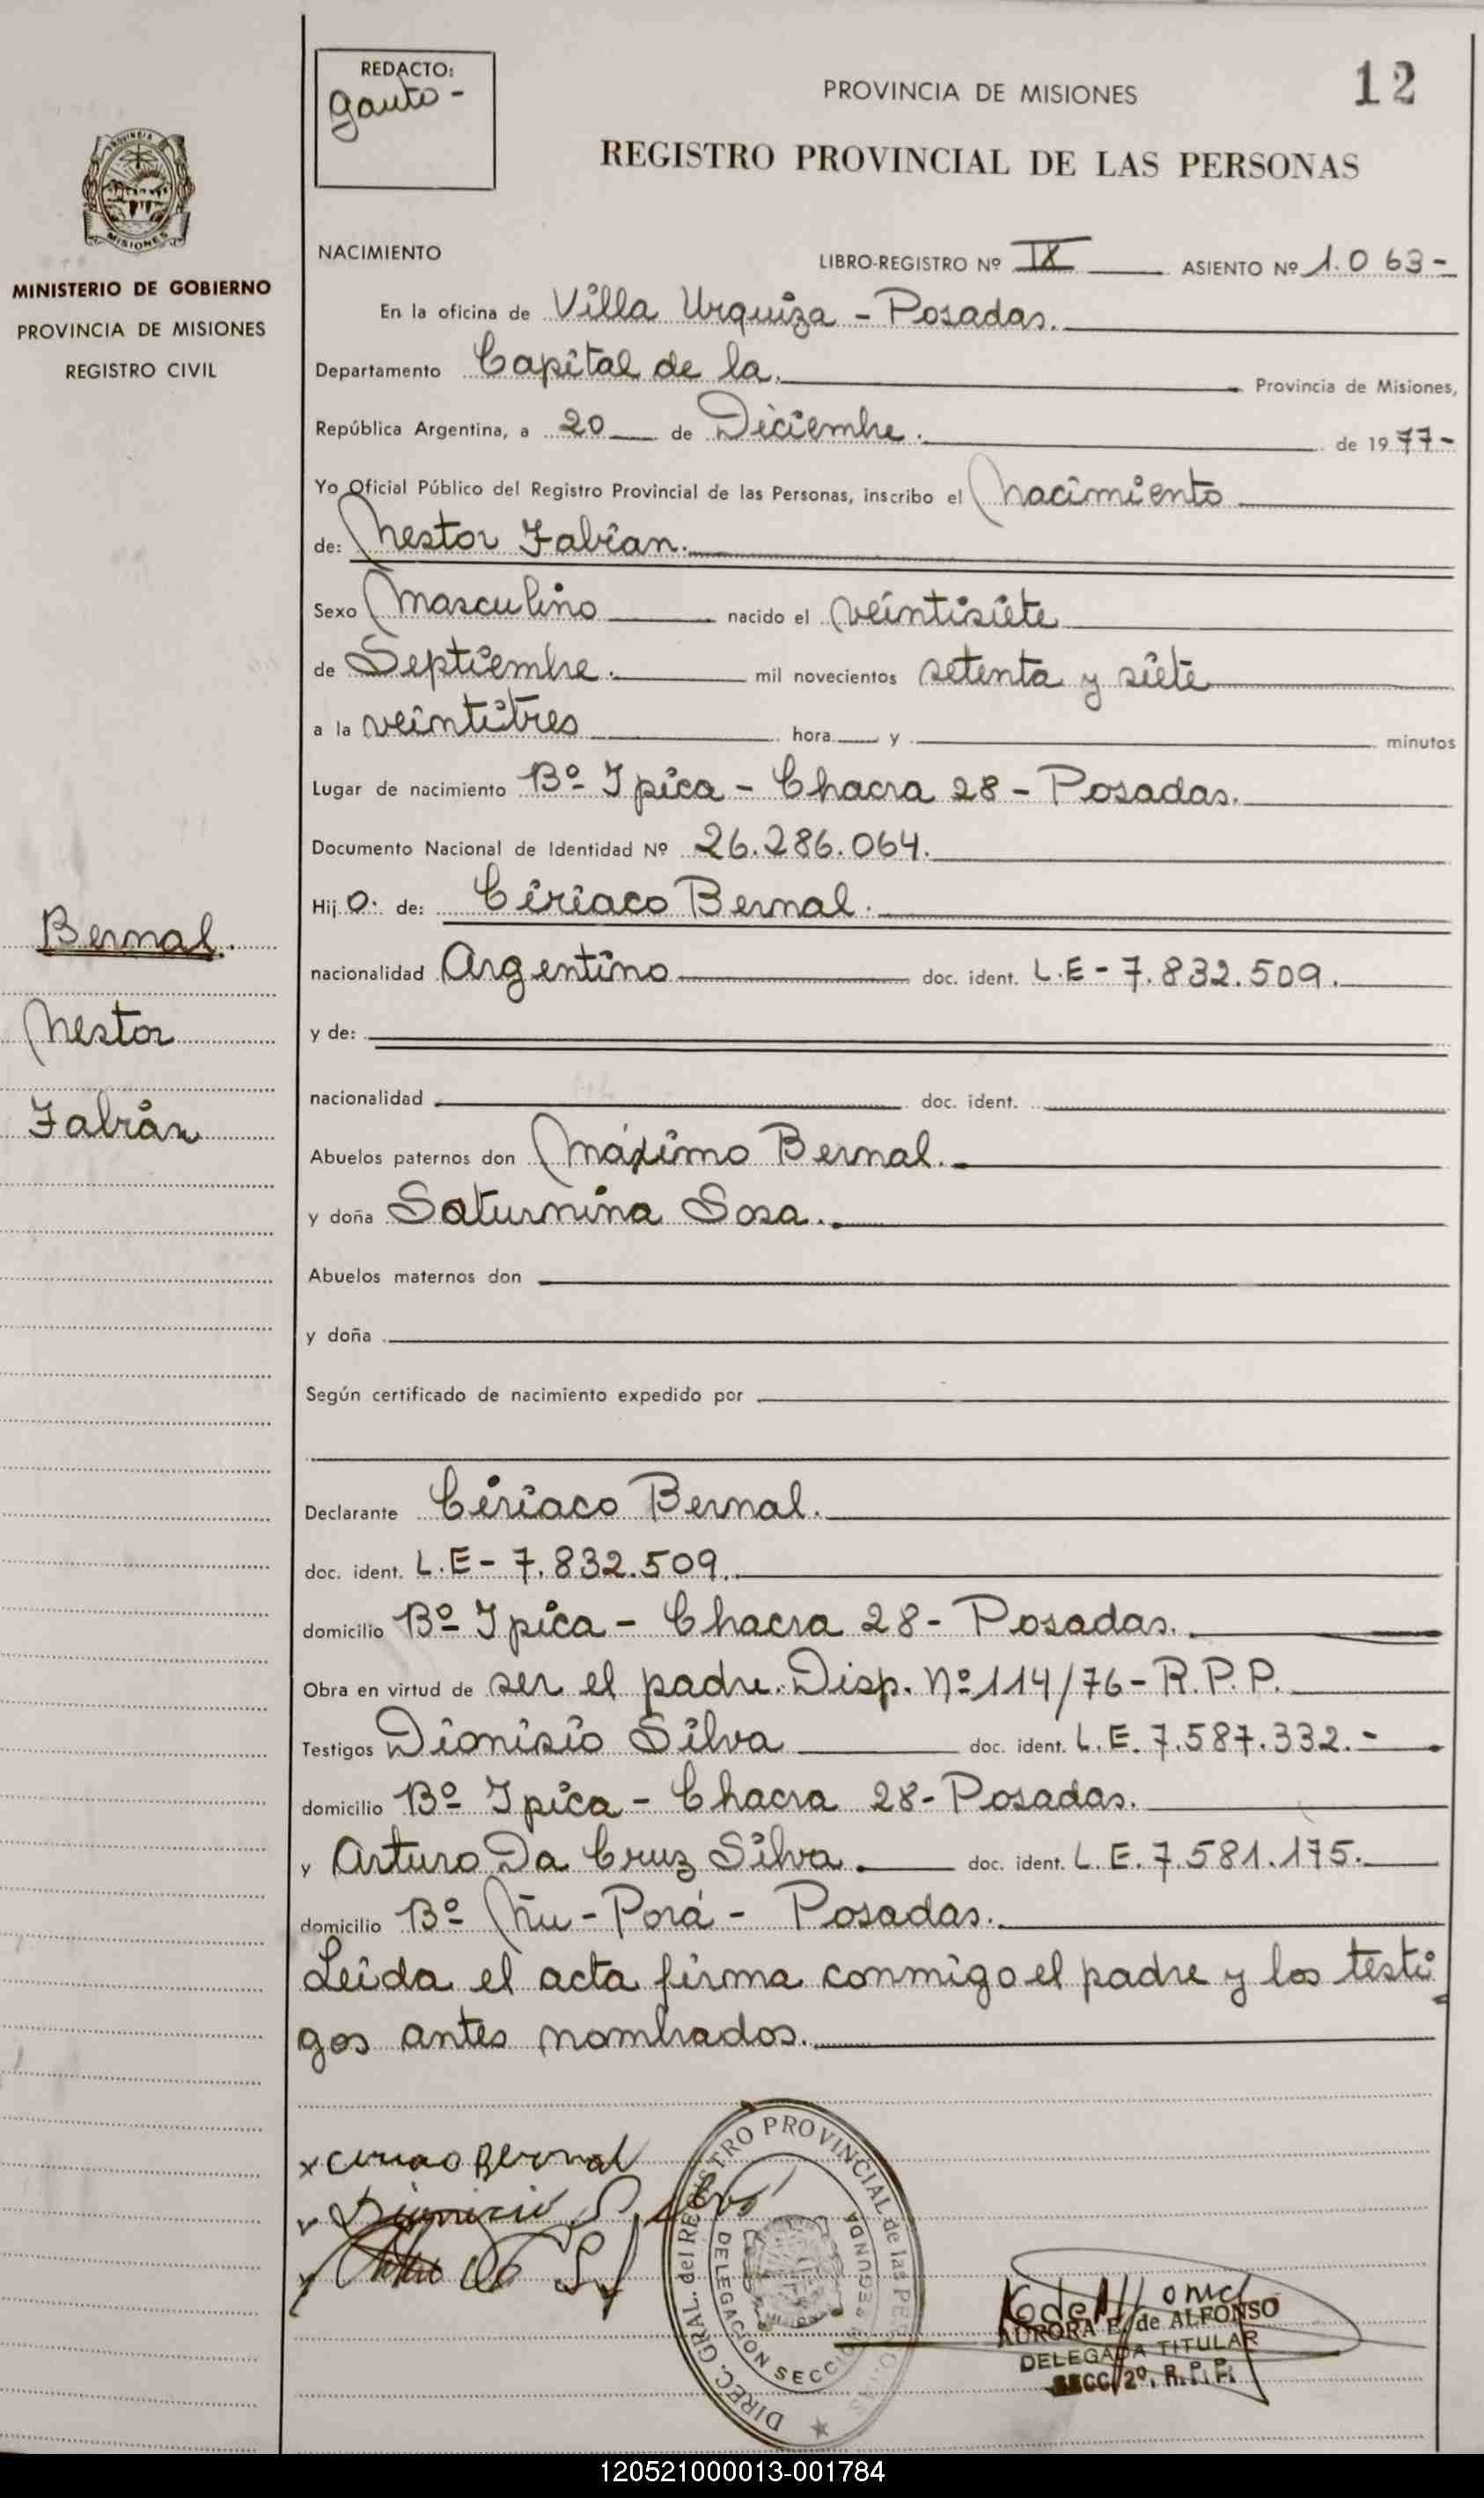 REDACTO:
Gauto -
PROVINCIA DE MISIONES
12
REGISTRO PROVINCIAL DE LAS PERSONAS
PROVINCIA
MISIONES
MINISTERIO DE GOBIERNO
PROVINCIA DE MISIONES
REGISTRO CIVIL
NACIMIENTO LIBRO-REGISTRO Nº IX ASIENTO Nº 1.063-
En la oficina de Villa Urquiza - Posadas.
Departamento Capital de la. Provincia de Misiones,
República Argentina, a 20 de Diciembre. de 1977-
Yo Oficial Público del Registro Provincial de las Personas, inscribo el Nacimiento
de: Nestor Fabian.
Sexo Masculino nacido el veintisiete
de Septiembre. mil novecientos setenta y siete
a la veintitres hora y minutos
Lugar de nacimiento Bº Ipica - Chacra 28 - Posadas.
Documento Nacional de Identidad Nº 26.286.064.
Hijo. de: Ciriaco Bernal.
nacionalidad Argentino doc. ident. L.E - 7.832.509.
y de:
nacionalidad doc. ident.
Abuelos paternos don Máximo Bernal.
y doña Saturnina Sosa.
Abuelos maternos don
y doña
Según certificado de nacimiento expedido por
Declarante Ciriaco Bernal.
doc. ident. L.E - 7.832.509.
domicilio Bº Ipica - Chacra 28 - Posadas.
Obra en virtud de ser el padre. Disp. Nº 114/76 - R.P.P.
Testigos Dionisio Silva doc. ident. L.E. 7.587.332.-
domicilio Bº Ipica - Chacra 28 - Posadas.
y Arturo Da Cruz Silva. doc. ident. L.E. 7.581.175.
domicilio Bº Ñu - Porá - Posadas.
Leida el acta firma conmigo el padre y los testi-
gos antes nombrados.
Bernal.
Nestor
Fabián
x Ciriaco Bernal
Dionicio Silva
DIREC. GRAL. del REGISTRO PROVINCIAL de las PERSONAS
DELEGACION SECCION SEGUNDA
AURORA E. de ALFONSO
DELEGADA TITULAR
SECC. 2º. R.P.P.
120521000013-001784